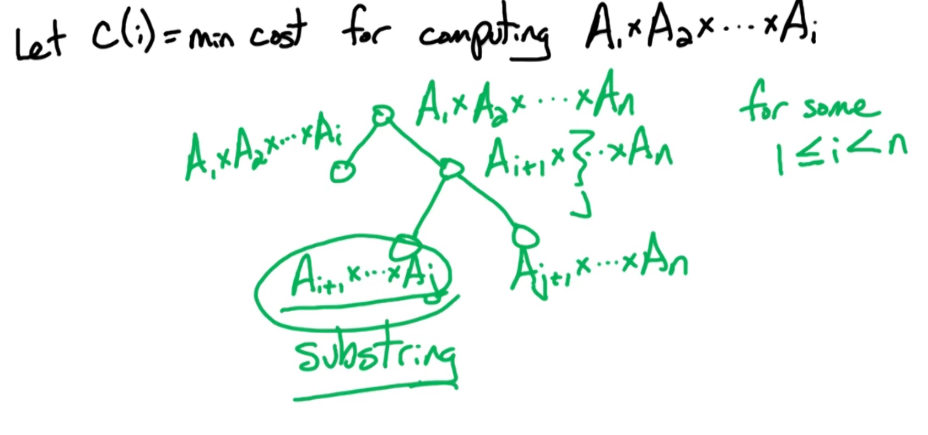 Let C(i) = min cost for computing A₁×A₂×⋯×Aᵢ
A₁×A₂×⋯×Aₙ
for some
1≤i<n
A₁×A₂×⋯×Aᵢ
Aᵢ₊₁×⋯×Aₙ
j
Aᵢ₊₁×⋯×Aⱼ
Aⱼ₊₁×⋯×Aₙ
substring